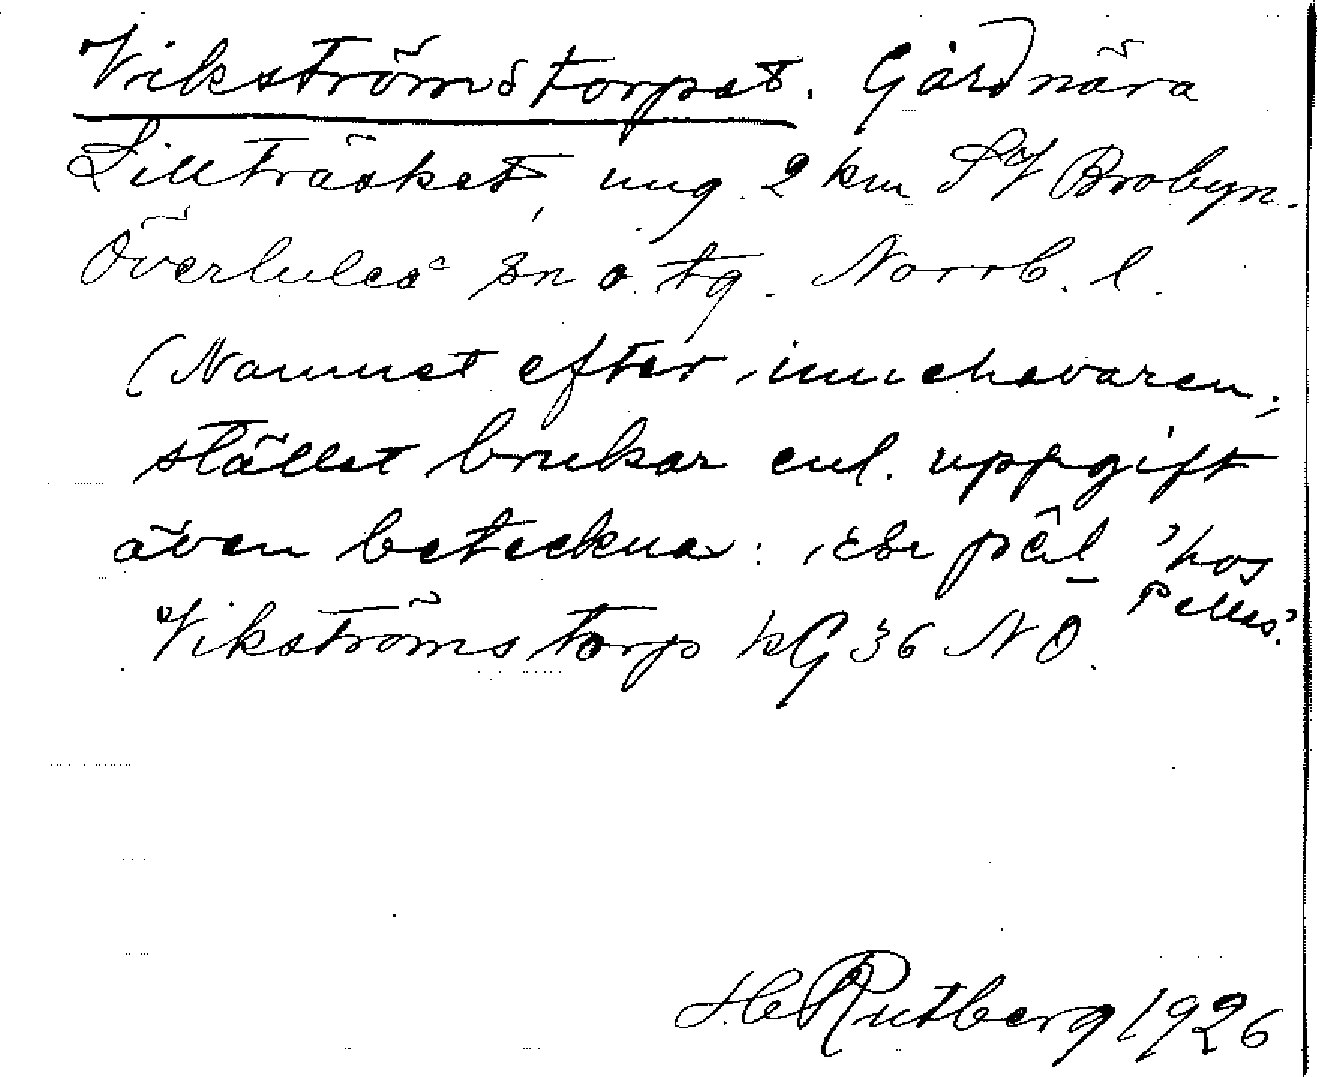 Vikströmstorpet. Gård nära
Lillträsket, ung. 2 km SV Brobyn.
Överluleå sn o. tg. Norrb. l.
(Namnet efter innehavaren;
stället brukar enl. uppgift
även betecknas: pål "hos
Pelles".
Vikströms torp kG 36 NO.
H Rutberg 1926